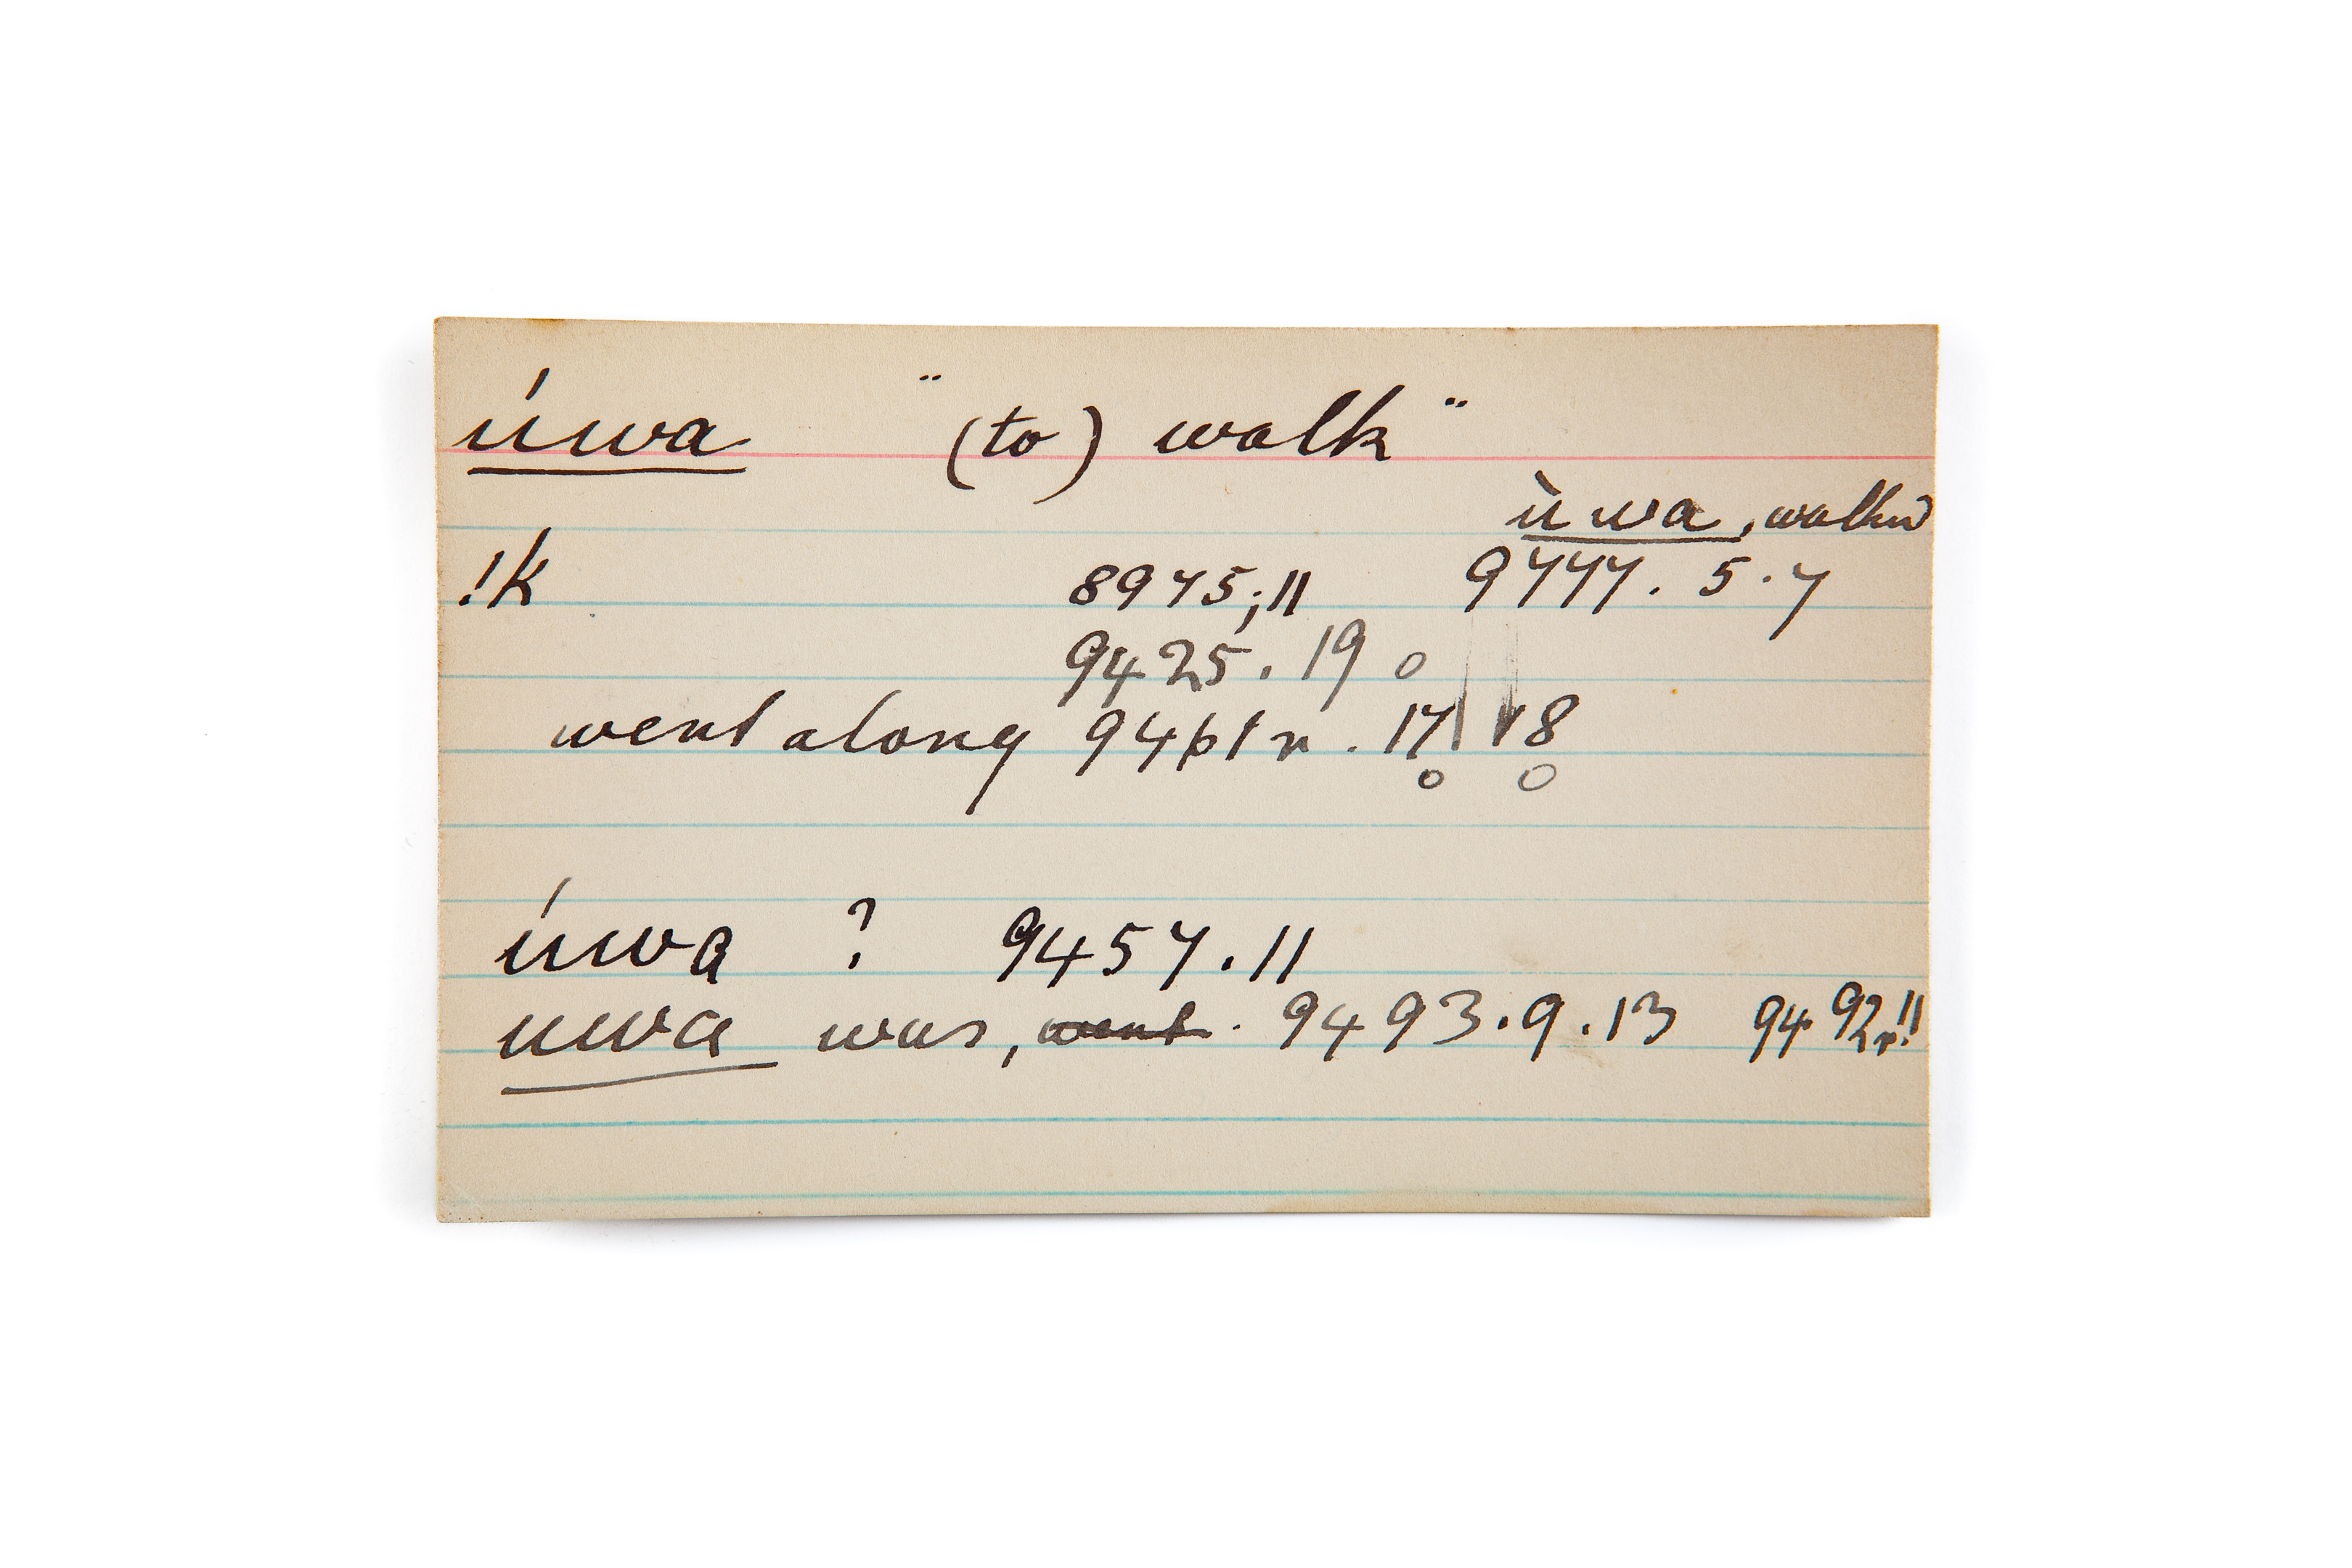 úwa "(to) walk"
ùwa, walkd
!k 8975;11 9777. 5.7
9425. 19 o
went along 9461 r. 17 18
o o
úwa ? 9457.11
uwa was, went. 9493.9.13 9492r.11